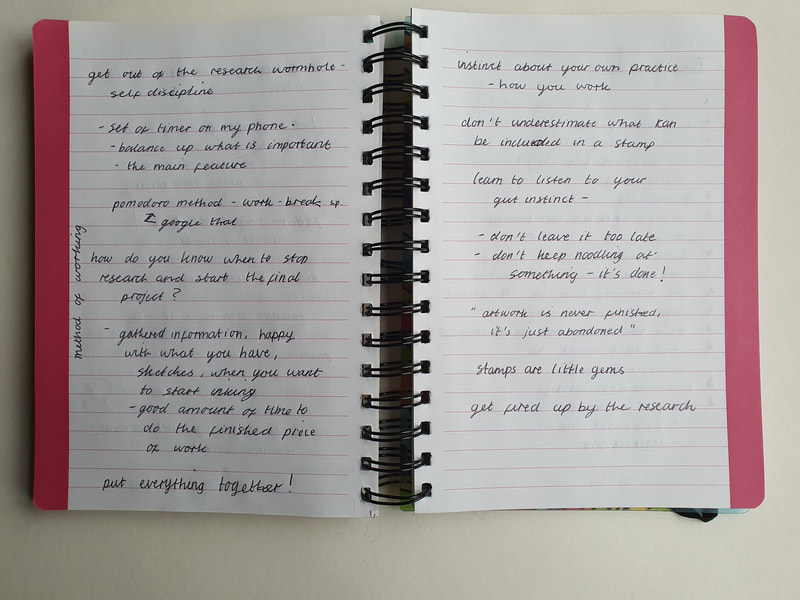 get out of the research wormhole -
self discipline
- set of timer on my phone.
- balance up what is important
- the main feature
pomodoro method - work - break up.
google that
method of working
how do you know when to stop
research and start the final
project?
- gathered information, happy
with what you have,
sketches, when you want
to start inking
- good amount of time to
do the finished piece
of work
put everything together!
instinct about your own practice
- how you work
don't underestimate what can
be included in a stamp
learn to listen to your
gut instinct -
- don't leave it too late
- don't keep noodling at
something - it's done!
"artwork is never finished,
it's just abandoned"
stamps are little gems
get fired up by the research